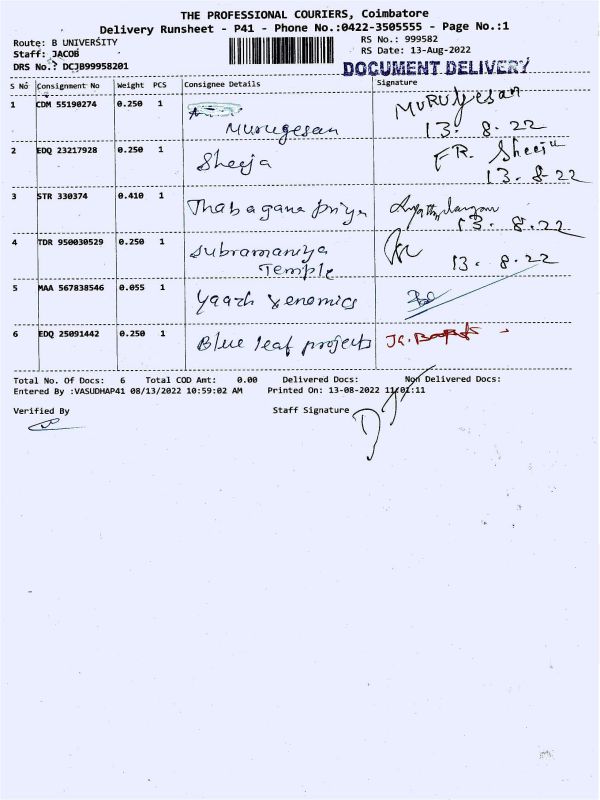 THE PROFESSIONAL COURIERS, Coimbatore
Delivery Runsheet - P41 - Phone No.:0422-3505555 - Page No.:1
Route: B UNIVERSITY RS No.: 999582
Staff: JACOB RS Date: 13-Aug-2022
DRS No.: DCJB99958201 DOCUMENT DELIVERY
S No Consignment No Weight PCS Consignee Details Signature
1 CDM 55190274 0.250 1 Murugesan
Murugesan 13. 8.22
2 EDQ 23217928 0.250 1 Sheeja FR. Sheeju
13. 8-22
3 STR 330374 0.410 1 Thabagana priya
13. 8.22
4 TDR 950030529 0.250 1 Subramaniya
Temple 13. 8.22
5 MAA 567838546 0.055 1 Yaazh Xenomics
6 EDQ 25091442 0.250 1 Blue leaf projects
Total No. Of Docs: 6 Total COD Amt: 0.00 Delivered Docs: Non Delivered Docs:
Entered By :VASUDHAP41 08/13/2022 10:59:02 AM Printed On: 13-08-2022 11:01:11
Verified By Staff Signature